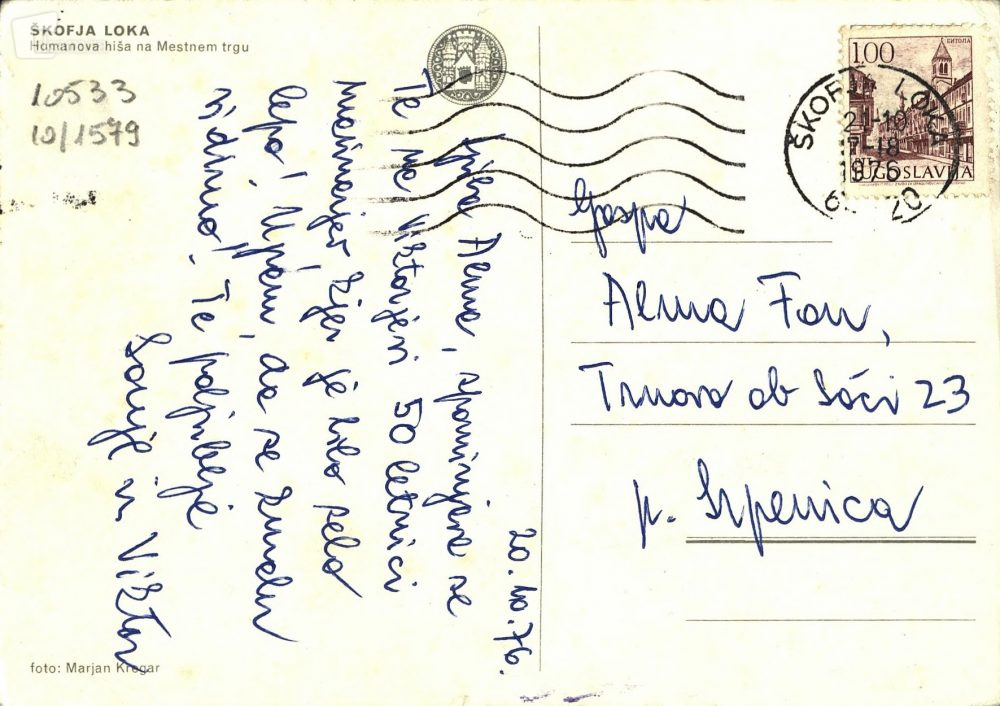 ŠKOFJA LOKA
Homanova hiša na Mestnem trgu
10533
10/1579
20.10.76.
Alma, spominjava se
Te na Viktorjevi 50 letnici
kjer je bilo zelo
lepo! Upam, da se kmalu
vidimo! Te
Sonja in Viktor
foto: Marjan Kregar
1.00
БИТОЛА
JUGOSLAVIJA
ŠKOFJA LOKA
21-10
1976
Gospa
Alma Fon,
Trnovo ob Soči 23
p. Srpenica